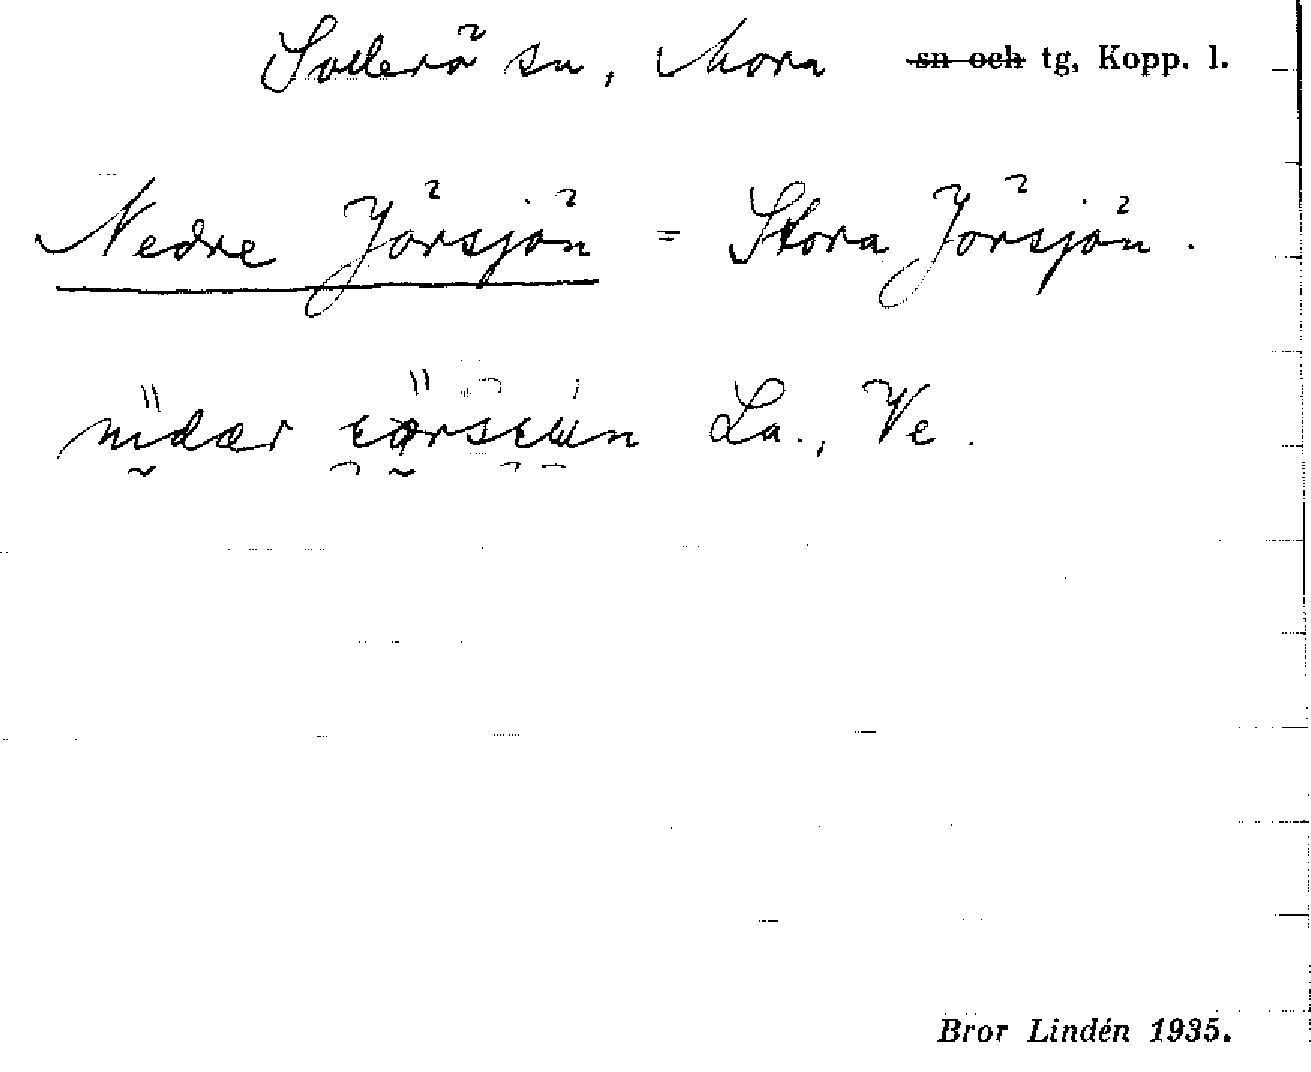 Sollerö sn, Mora sn och tg, Kopp. l.
Nedre Jörsjön = Stora Jörsjön.
La., Ve.
Bror Lindén 1935.